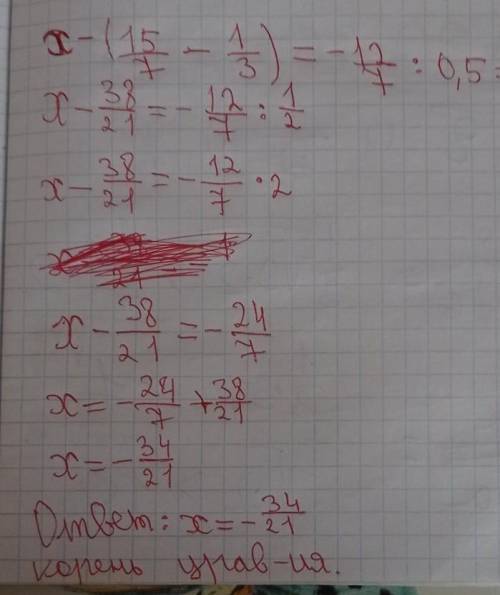 x - (15/7 - 1/3) = - 12/7 : 0,5 =
x - 38/21 = - 12/7 : 1/2
x - 38/21 = - 12/7 · 2
x - 38/21 = - 24/7
x = - 24/7 + 38/21
x = - 34/21
Ответ: x = - 34/21
корень урав-ия.